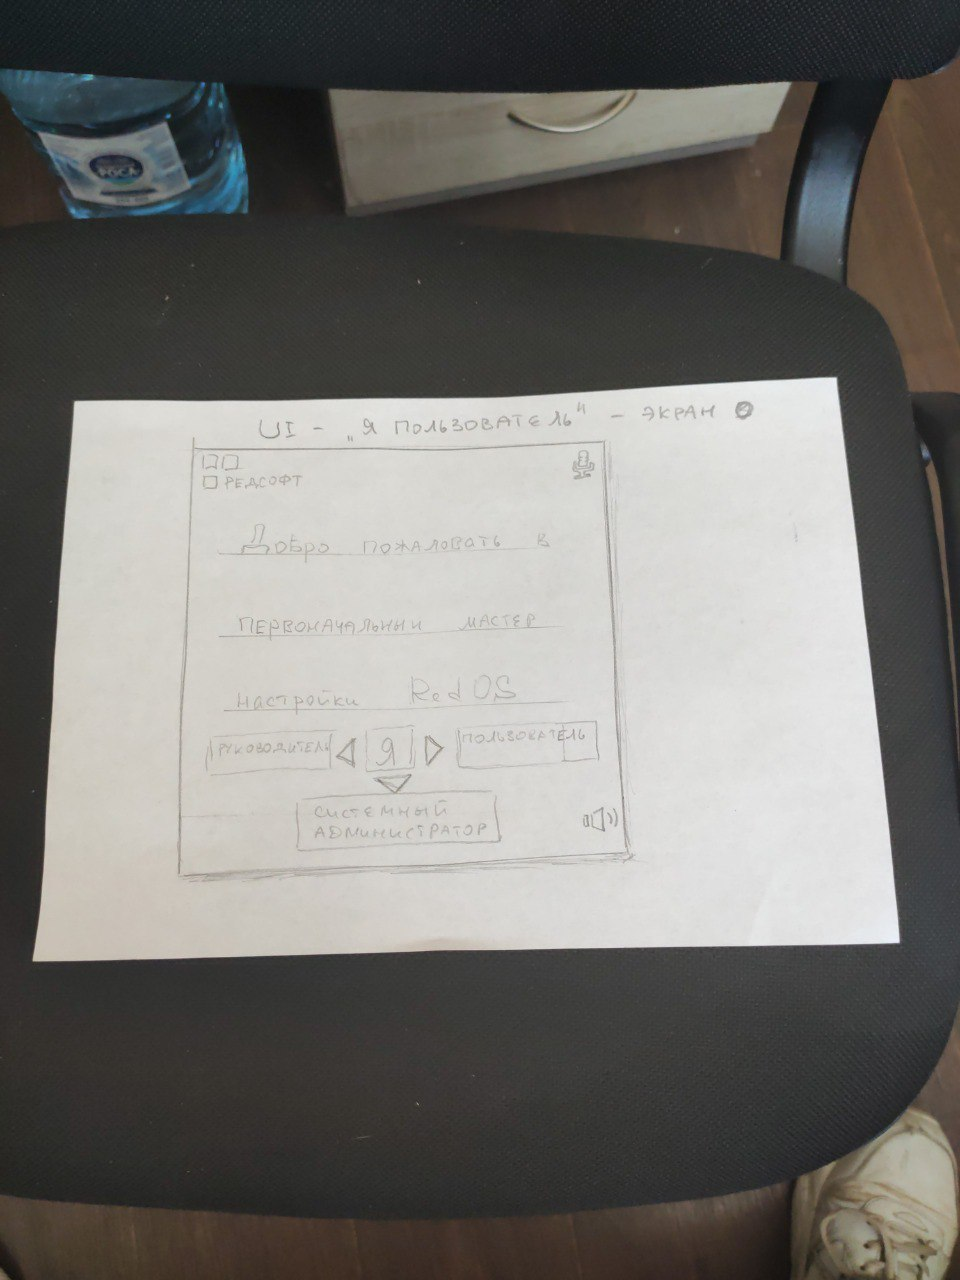 РОСА
UI - „Я ПОЛЬЗОВАТЕЛЬ" - ЭКРАН 0
РЕДСОФТ
Добро пожаловать в
ПЕРВОНАЧАЛЬНЫЙ МАСТЕР
настройки Red OS
РУКОВОДИТЕЛЬ Я ПОЛЬЗОВАТЕЛЬ
СИСТЕМНЫЙ
АДМИНИСТРАТОР